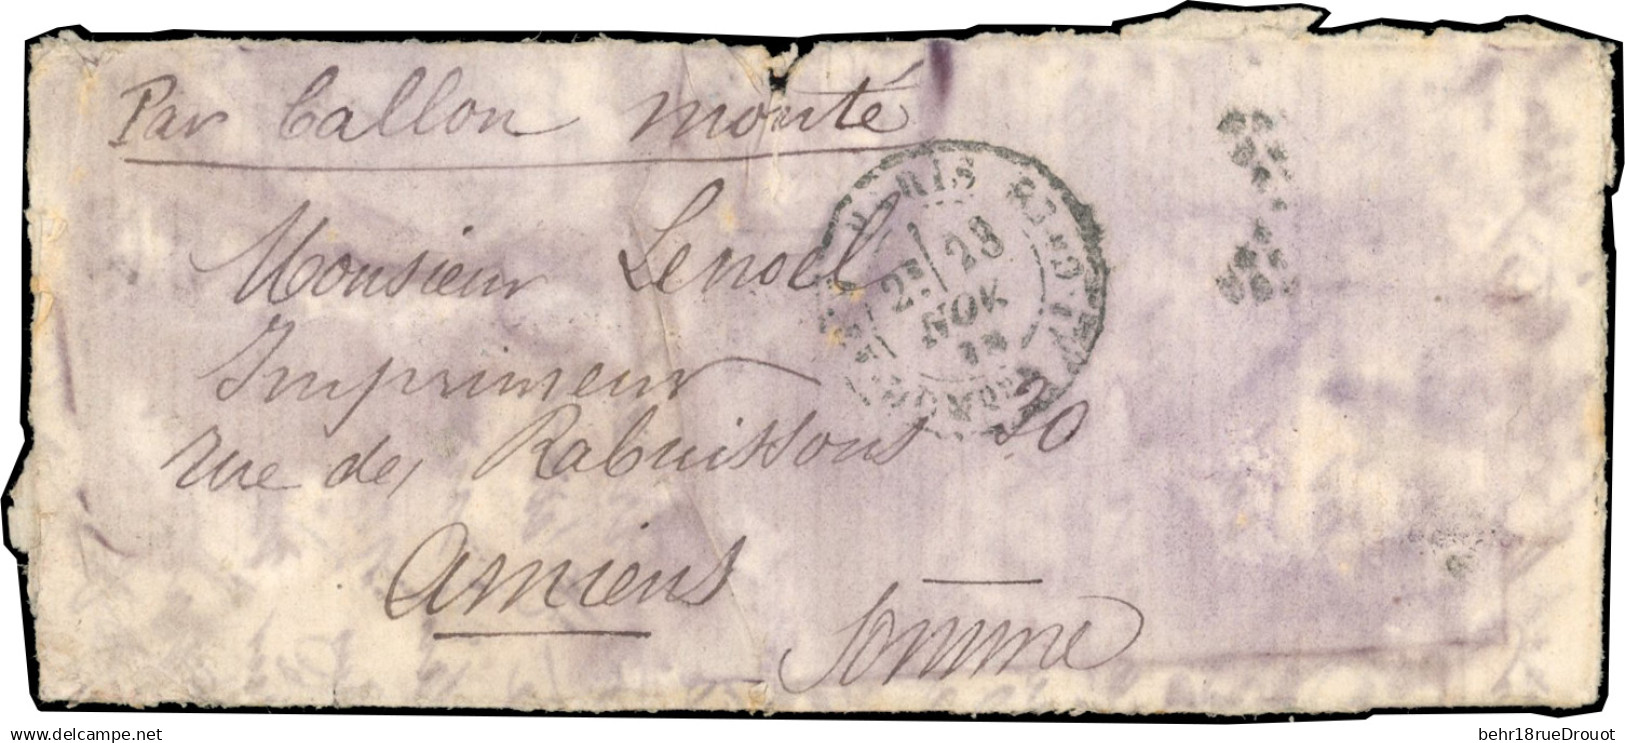 Par ballon monté
Monsieur Lenoël
Imprimeur
rue des Rabuissons 30
Amiens
Somme
PARIS
2E 28
NOV.
delcampe.net
behr18rueDrouot